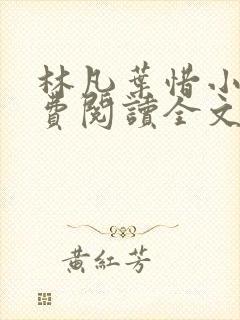 林凡葉惜小
費閱讀全文
黃紅芳